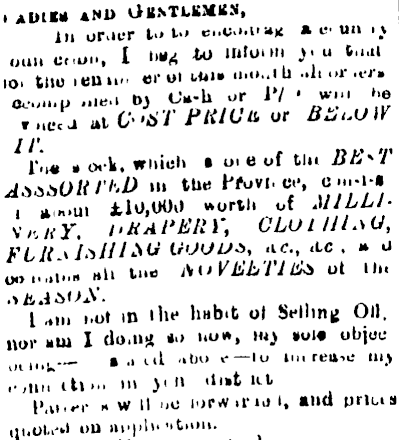 LADIES AND GENTLEMEN,
In order to to encourag a country
connection, I beg to inform you that
for the remainder of this month all orders
accompanied by Cash or P/ will be
at COST PRICE or BELOW
IT.
The stock, which is one of the BEST
ASSSORTED in the Province, consists
about £10,000 worth of MILLI-
NERY, DRAPERY, CLOTHING,
FURNISHING GOODS, &c., &c., and
contains all the NOVELTIES of the
SEASON.
I am not in the habit of Selling Off,
nor am I doing so now, my sole objec
being— stated above—to increase my
connection in your district
Patterns will be forwarded, and prices
quoted on application.